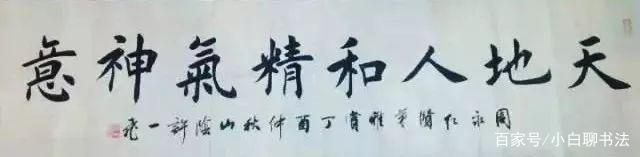 天地人和精氣神意
永仁賢雅賞丁酉仲秋山陰許一飛
百家号/小白聊书法